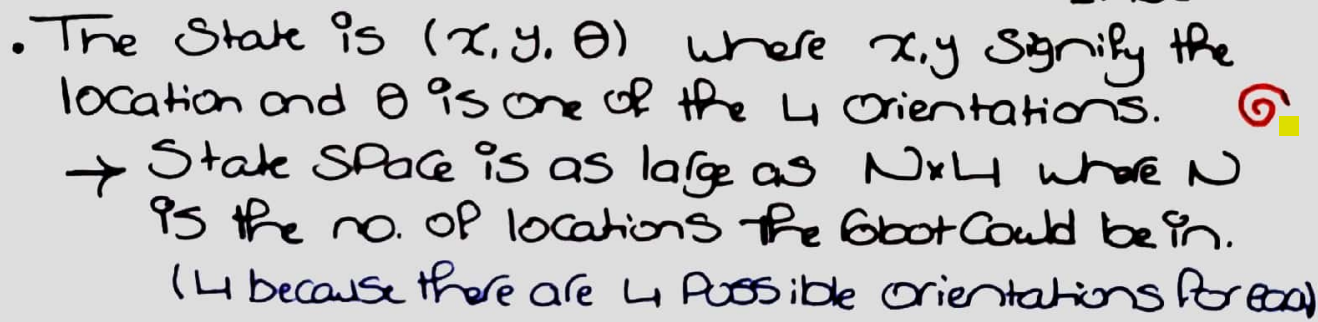 • The State is (x, y, θ) where x,y Signify the
location and θ is one of the 4 orientations.
→ State Space is as large as N×4 where N
is the no. of locations the robot Could be in.
(4 because there are 4 Possible orientations for each)